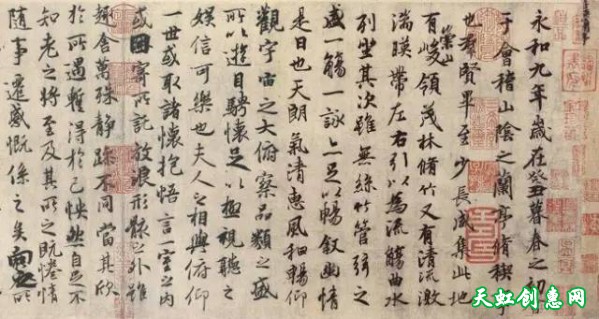 永和九年歲在癸丑暮春之初
于會稽山陰之蘭亭脩稧
也群賢畢至少長咸集此地
有崇山峻領茂林脩竹又有清流激
湍暎帶左右引以為流觴曲水
列坐其次雖無絲竹管弦之
盛一觴一詠亦足以暢叙幽情
是日也天朗氣清惠風和暢仰
觀宇宙之大俯察品類之盛
所以遊目騁懷足以極視聽之
娛信可樂也夫人之相與俯仰
一世或取諸懷抱悟言一室之內
或因寄所託放浪形骸之外雖
趣舍萬殊靜躁不同當其欣
於所遇暫得於己怏然自足不
知老之將至及其所之既惓情
隨事遷感慨係之矣向之所
天虹创惠网